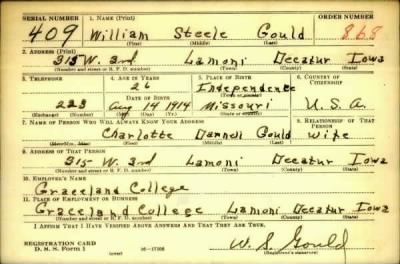 SERIAL NUMBER 1. NAME (Print) ORDER NUMBER
409 William Steele Gould 868
(First) (Middle) (Last)
2. ADDRESS (Print)
315 W. 2nd Lamoni Decatur Iowa
(Number and street or R. F. D. number) (Town) (County) (State)
3. TELEPHONE 4. AGE IN YEARS 5. PLACE OF BIRTH 6. COUNTRY OF CITIZENSHIP
26 Independence
DATE OF BIRTH (Town or county)
223 Aug 14 1914 Missouri U.S.A.
(Exchange) (No.) (Mo.) (Day) (Yr.) (State or country)
7. NAME OF PERSON WHO WILL ALWAYS KNOW YOUR ADDRESS 8. RELATIONSHIP OF THAT PERSON
Charlotte Darnell Gould wife
(Mr., Mrs., Miss) (First) (Middle) (Last)
9. ADDRESS OF THAT PERSON
315 W. 2nd Lamoni Decatur Iowa
(Number and street or R. F. D. number) (Town) (County) (State)
10. EMPLOYER'S NAME
Graceland College
11. PLACE OF EMPLOYMENT OR BUSINESS
Graceland College Lamoni Decatur Iowa
(Number and street or R. F. D. number) (Town) (County) (State)
I AFFIRM THAT I HAVE VERIFIED ABOVE ANSWERS AND THAT THEY ARE TRUE.
REGISTRATION CARD
D. S. S. Form 1 (over) W. S. Gould
(Registrant's signature)